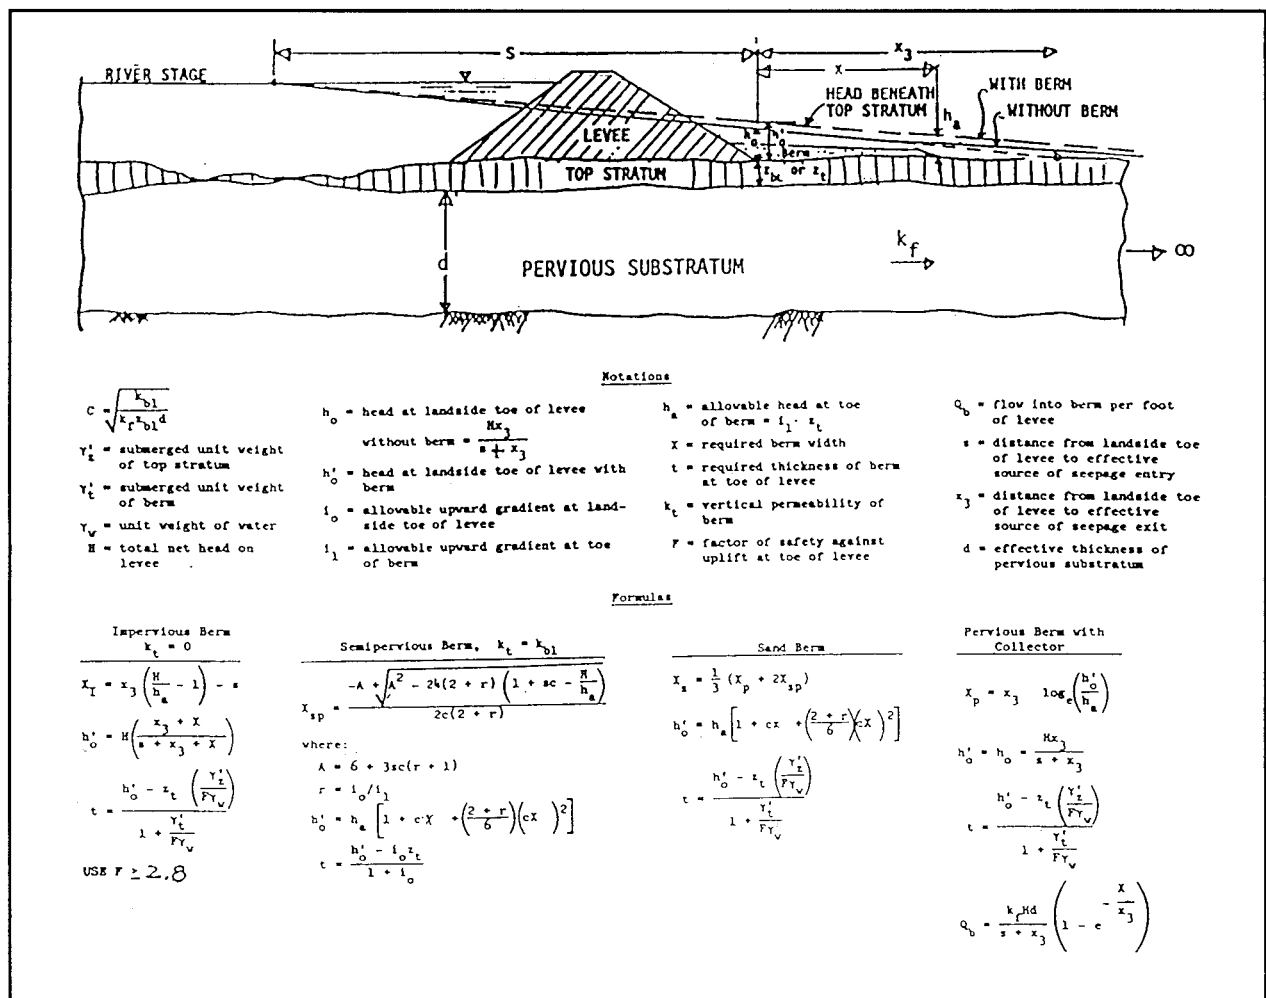 S
x₃
RIVER STAGE
X
HEAD BENEATH
TOP STRATUM
WITH BERM
WITHOUT BERM
hₐ
LEVEE
h'ₒ
BERM
TOP STRATUM
z_bL or z_t
d
k_f
PERVIOUS SUBSTRATUM
∞
Notations
C = √(k_bl / (k_f z_bl d))
γ'_z = submerged unit weight
of top stratum
γ'_t = submerged unit weight
of berm
γ_w = unit weight of water
H = total net head on
levee
h_o = head at landside toe of levee
without berm = Hx₃ / (s + x₃)
h'_o = head at landside toe of levee with
berm
i_o = allowable upward gradient at land-
side toe of levee
i_1 = allowable upward gradient at toe
of berm
h_a = allowable head at toe
of berm = i_1 · z_t
X = required berm width
t = required thickness of berm
at toe of levee
k_t = vertical permeability of
berm
F = factor of safety against
uplift at toe of levee
Q_b = flow into berm per foot
of levee
s = distance from landside toe
of levee to effective
source of seepage entry
x₃ = distance from landside toe
of levee to effective
source of seepage exit
d = effective thickness of
pervious substratum
Formulas
Impervious Berm
k_t = 0
X_I = x₃ (H/h_a - 1) - s
h'_o = H ((x₃ + X) / (s + x₃ + X))
t = (h'_o - z_t (γ'_z / Fγ_w)) / (1 + γ'_t / Fγ_w)
USE F ≥ 2.8
Semipervious Berm, k_t = k_bl
X_sp = (-A + √(A² - 24(2 + r) (1 + sc - H/h_a))) / (2c(2 + r))
where:
A = 6 + 3sc(r + 1)
r = i_o/i_1
h'_o = h_a [1 + cX + ((2 + r)/6) (cX)²]
t = (h'_o - i_o z_t) / (1 + i_o)
Sand Berm
X_s = 1/3 (X_p + 2X_sp)
h'_o = h_a [1 + cx + ((2 + r)/6) (cX)²]
t = (h'_o - z_t (γ'_z / Fγ_w)) / (1 + γ'_t / Fγ_w)
Pervious Berm with
Collector
X_p = x₃ log_e (h'_o / h_a)
h'_o = h_o = Hx₃ / (s + x₃)
t = (h'_o - z_t (γ'_z / Fγ_w)) / (1 + γ'_t / Fγ_w)
Q_b = (k_f Hd / (s + x₃)) (1 - e^(-X/x₃))